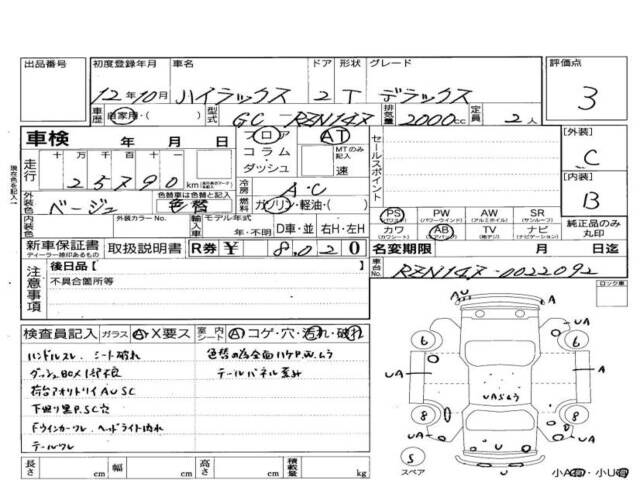 出品番号 初度登録年月 車名 ドア 形状 グレード 評価点
12年10月 ハイラックス 2 T デラックス 3
車歴 自家用・( ) 型式 GC-RZN147 排気量 2000cc 定員 2人
車検 年 月 日 フロア AT セールスポイント [外装]
コラム・ダッシュ MTのみ記入 速 C
走行 十万千百十一
25790km 冷房 A・C [内装]
現在色を記入
外装色 ベージュ 色替車は色替と記入 色替 燃料 ガソリン・軽油・( ) B
PS PW AW SR
(パワステ) (パワーウインド) (アルミホイル) (サンルーフ)
内装色 外装カラーNo. 輸入車 モデル年式 年・不明 D車・並 右H・左H カワ AB TV ナビ 純正品のみ丸印
(カワシート) (エアバック) (純正デジ) (ナビゲーション)
新車保証書 取扱説明書 R券 ¥ 8,020 名変期限 月 日迄
ディーラー捺印あるもの
注意事項 後日品[ ] 車台No. RZN147-0022092
不具合箇所等 ロック車
検査員記入 ガラス A・X要ス 室内シート A コゲ・穴・汚れ・破れ
ハンドルスレ シート破れ 色替の為全面ハケP.W.ムラ
ダッシュBOX1部不良 テールパネル歪み
荷台アオリトリイAUSC
下廻り里P.SC穴
Fウインカーワレ ヘッドライト内れ
テールワレ
長さ cm 幅 cm 高さ cm 積載量 kg
A
UA
A
6
6
UA
A
UASムラ
8
8
U
U
S
スペア
小A・小U